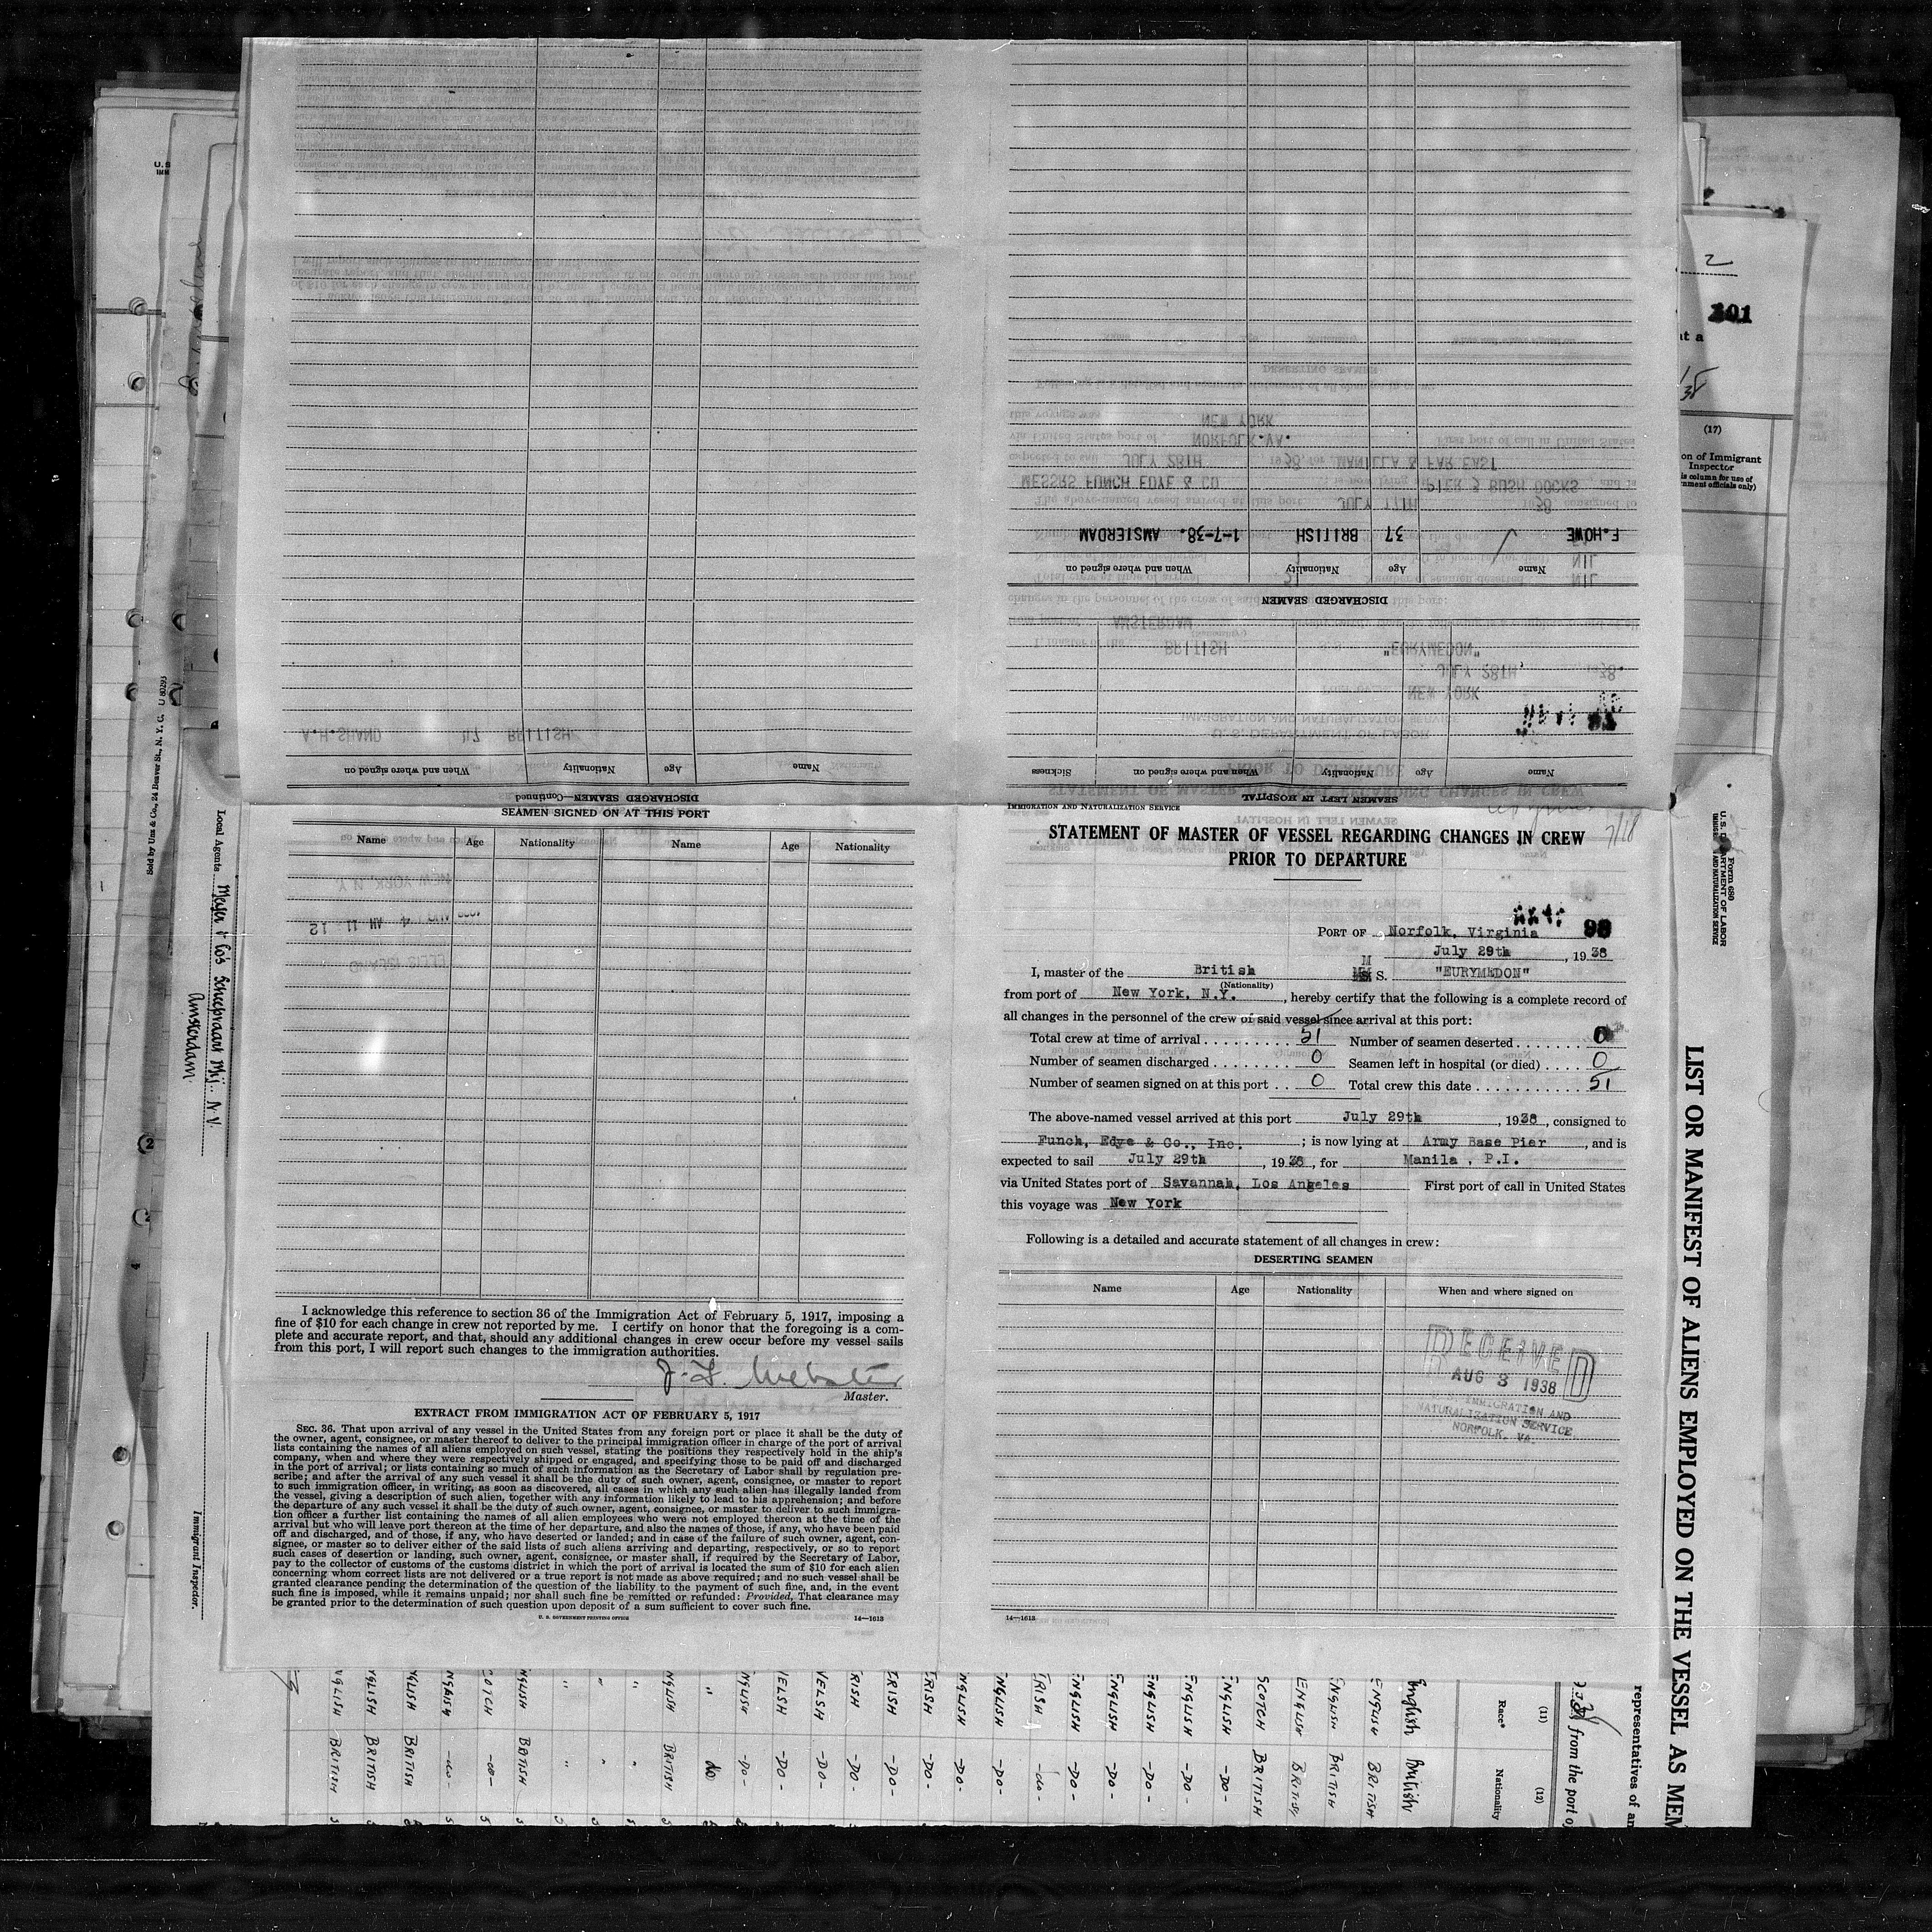 DISCHARGED SEAMEN—Continued
Name Age Nationality When and where signed on
A.H.SHAND 47 BRITISH
F.HOWE 37 BRITISH 1-7-38. AMSTERDAM
Name Age Nationality When and where signed on
DISCHARGED SEAMEN
Name Age Nationality When and where signed on Sickness
SEAMEN LEFT IN HOSPITAL
NEW YORK
NORFOLK.VA.
JULY 28TH 1938, for MANILLA & FAR EAST
MESSRS FUNCH EDYE & CO PIER 3 BUSH DOCKS
JULY 17TH
NIL
NIL
AMSTERDAM
BRITISH "EURYMEDON"
JULY 28TH,
NEW YORK
SEAMEN SIGNED ON AT THIS PORT
Name Age Nationality Name Age Nationality
NEW YORK N.Y
ELLIS ISLAND
I acknowledge this reference to section 36 of the Immigration Act of February 5, 1917, imposing a
fine of $10 for each change in crew not reported by me. I certify on honor that the foregoing is a com-
plete and accurate report, and that, should any additional changes in crew occur before my vessel sails
from this port, I will report such changes to the immigration authorities.
J. F. Webster
Master.
EXTRACT FROM IMMIGRATION ACT OF FEBRUARY 5, 1917
SEC. 36. That upon arrival of any vessel in the United States from any foreign port or place it shall be the duty of
the owner, agent, consignee, or master thereof to deliver to the principal immigration officer in charge of the port of arrival
lists containing the names of all aliens employed on such vessel, stating the positions they respectively hold in the ship's
company, when and where they were respectively shipped or engaged, and specifying those to be paid off and discharged
in the port of arrival; or lists containing so much of such information as the Secretary of Labor shall by regulation pre-
scribe; and after the arrival of any such vessel it shall be the duty of such owner, agent, consignee, or master to report
to such immigration officer, in writing, as soon as discovered, all cases in which any such alien has illegally landed from
the vessel, giving a description of such alien, together with any information likely to lead to his apprehension; and before
the departure of any such vessel it shall be the duty of such owner, agent, consignee, or master to deliver to such immigra-
tion officer a further list containing the names of all alien employees who were not employed thereon at the time of the
arrival but who will leave port thereon at the time of her departure, and also the names of those, if any, who have been paid
off and discharged, and of those, if any, who have deserted or landed; and in case of the failure of such owner, agent, con-
signee, or master so to deliver either of the said lists of such aliens arriving and departing, respectively, or so to report
such cases of desertion or landing, such owner, agent, consignee, or master shall, if required by the Secretary of Labor,
pay to the collector of customs of the customs district in which the port of arrival is located the sum of $10 for each alien
concerning whom correct lists are not delivered or a true report is not made as above required; and no such vessel shall be
granted clearance pending the determination of the question of the liability to the payment of such fine, and, in the event
such fine is imposed, while it remains unpaid; nor shall such fine be remitted or refunded: Provided, That clearance may
be granted prior to the determination of such question upon deposit of a sum sufficient to cover such fine.
U. S. GOVERNMENT PRINTING OFFICE 14—1613
IMMIGRATION AND NATURALIZATION SERVICE
STATEMENT OF MASTER OF VESSEL REGARDING CHANGES IN CREW
PRIOR TO DEPARTURE
7/28
PORT OF Norfolk, Virginia 98
July 29th, 1938
I, master of the British M S. "EURYMEDON"
(Nationality)
from port of New York, N.Y., hereby certify that the following is a complete record of
all changes in the personnel of the crew of said vessel since arrival at this port:
Total crew at time of arrival 51 Number of seamen deserted 0
Number of seamen discharged 0 Seamen left in hospital (or died) 0
Number of seamen signed on at this port 0 Total crew this date 51
The above-named vessel arrived at this port July 29th, 1938, consigned to
Funch, Edye & Co., Inc.; is now lying at Army Base Pier, and is
expected to sail July 29th, 1938, for Manila, P.I.
via United States port of Savannah, Los Angeles First port of call in United States
this voyage was New York
Following is a detailed and accurate statement of all changes in crew:
DESERTING SEAMEN
Name Age Nationality When and where signed on
RECEIVED
AUG 3 1938
IMMIGRATION AND
NATURALIZATION SERVICE
NORFOLK, VA.
14—1613
Sold by Unz & Co., 24 Beaver St., N. Y. C. U 80293
Local Agents Meyer & Co's Scheepvaart Mij. N.V.
Amsterdam
Immigrant Inspector.
201
at a
(17)
on of Immigrant
Inspector
is column for use of
nment officials only)
Form 680
U. S. DEPARTMENT OF LABOR
AND NATURALIZATION SERVICE
LIST OR MANIFEST OF ALIENS EMPLOYED ON THE VESSEL AS MEM
representatives of an
from the port of
(11) (12)
Race* Nationality
English British
ENGLISH BRITISH
ENGLISH BRITISH
ENGLISH BRITISH
SCOTCH BRITISH
ENGLISH -DO-
ENGLISH -DO-
ENGLISH -DO-
ENGLISH -DO-
ENGLISH -DO-
IRISH -do-
NGLISH -DO-
NGLISH -DO-
IRISH -DO-
IRISH -DO-
IRISH -DO-
WELSH -DO-
WELSH -DO-
NGLISH -DO-
" do
NGLISH BRITISH
" "
" "
" "
NGLISH BRITISH
COTCH -do-
NGLISH -do-
NGLISH BRITISH
NGLISH BRITISH
NGLISH BRITISH